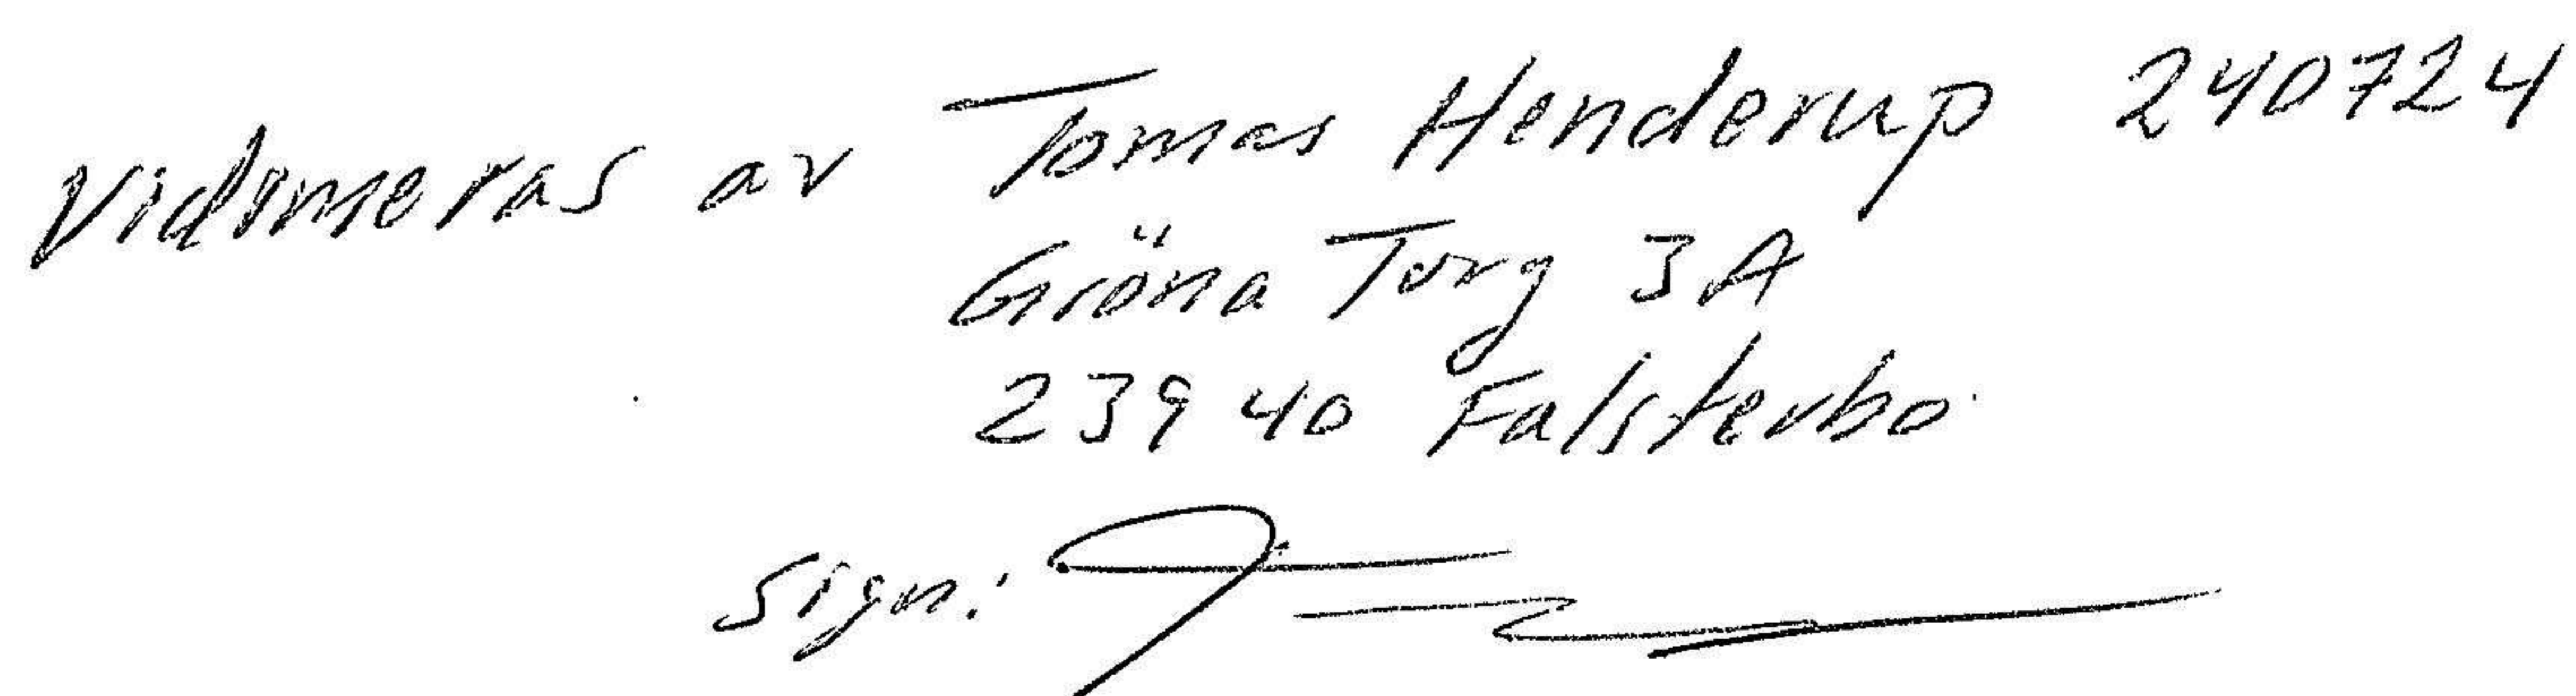 Vidimeras av Tomas Henderup 240724
Gröna Torg 3A
239 40 Falsterbo
Sign: